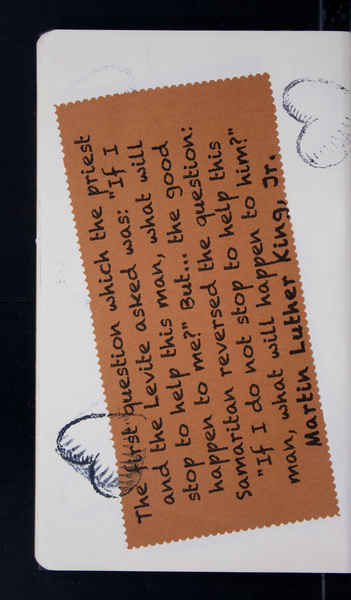 The first question which the priest
and the Levite asked was: "If I
stop to help this man, what will
happen to me?" But... the good
Samaritan reversed the question:
"If I do not stop to help this
man, what will happen to him?"
Martin Luther King, Jr.